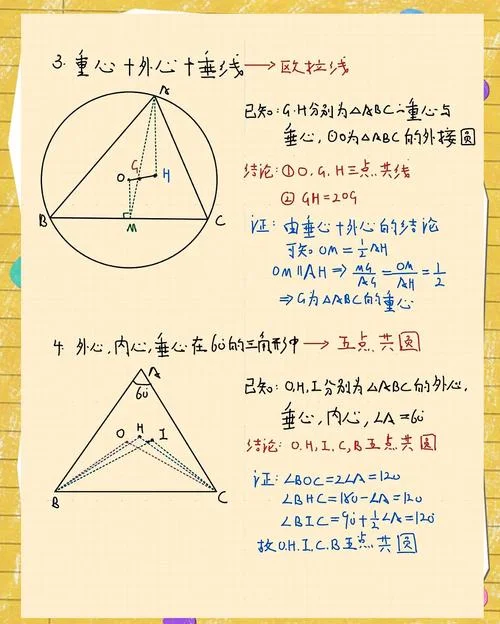 3. 重心十外心十垂线→欧拉线
A
G
O
H
B
M
C
已知:G.H分别为△ABC之重心与
垂心,⊙O为△ABC的外接圆
结论:①O.G.H三点共线
②GH=2OG
证:由垂心十外心的结论
可知OM=1/2AH
OM∥AH⇒MG/AG=OM/AH=1/2
⇒G为△ABC的重心
4. 外心,内心,垂心在60°的三角形中→五点共圆
A
60°
O
H
I
B
C
已知:O,H,I分别为△ABC的外心,
垂心,内心,∠A=60°
结论:O.H,I.C,B五点共圆
证:∠BOC=2∠A=120°
∠BHC=180-∠A=120°
∠BIC=90°+1/2∠A=120°
故O.H.I.C.B五点共圆